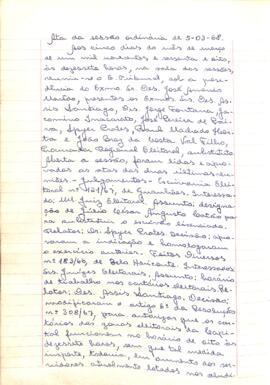 Ata da sessão ordinária de 5-03-68.
Aos cinco dias do mês de março
de um mil novecentos e sessenta e oito,
às dezessete horas, na sala das sessões,
reuniu-se o E. Tribunal, sob a presi-
dência do Exmo. Sr. Des. José Américo
Macêdo, presentes os Exmos. Srs. Des.
Assis Santiago, Des. Jorge Fontana, Ja-
comino Inacarato, José Pereira de Pai-
va, Spyer Prates, Raul Machado Hor-
ta e João Braz da Costa Val Filho,
Procurador Regional Eleitoral, substituto.
Aberta a sessão, foram lidas e apro-
vadas as atas das duas últimas reu-
niões - Julgamentos - Escrivania Elei-
toral nº 421/67, de Guanhães. Interessa-
do, MM. Juiz Eleitoral, Assunto: designa-
ção de Júlio César Augusto Coelho pa-
ra substituir o escrivão licenciado.
Relator: Dr. Spyer Prates. Decisão: apro-
varam a indicação e homologaram
o exercício anterior. - Feitos Diversos
nº 183/68, de Belo Horizonte. Interessados
Srs. Juízes Eleitorais, Assunto: horário
de trabalho nos cartórios eleitorais. Re-
lator: Des. Assis Santiago, Decisão:
modificaram o artigo 6º da Resolução
nº 308/67, para autorizar que os car-
tórios das zonas eleitorais da Capi-
tal funcionem no horário de oito às
dezessete horas, sem que tal medida
importe, todavia, em aumento aos ser-
vidores atualmente lotados nos